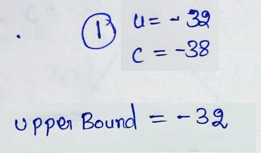 ① u = - 32
c = -38
upper Bound = - 32